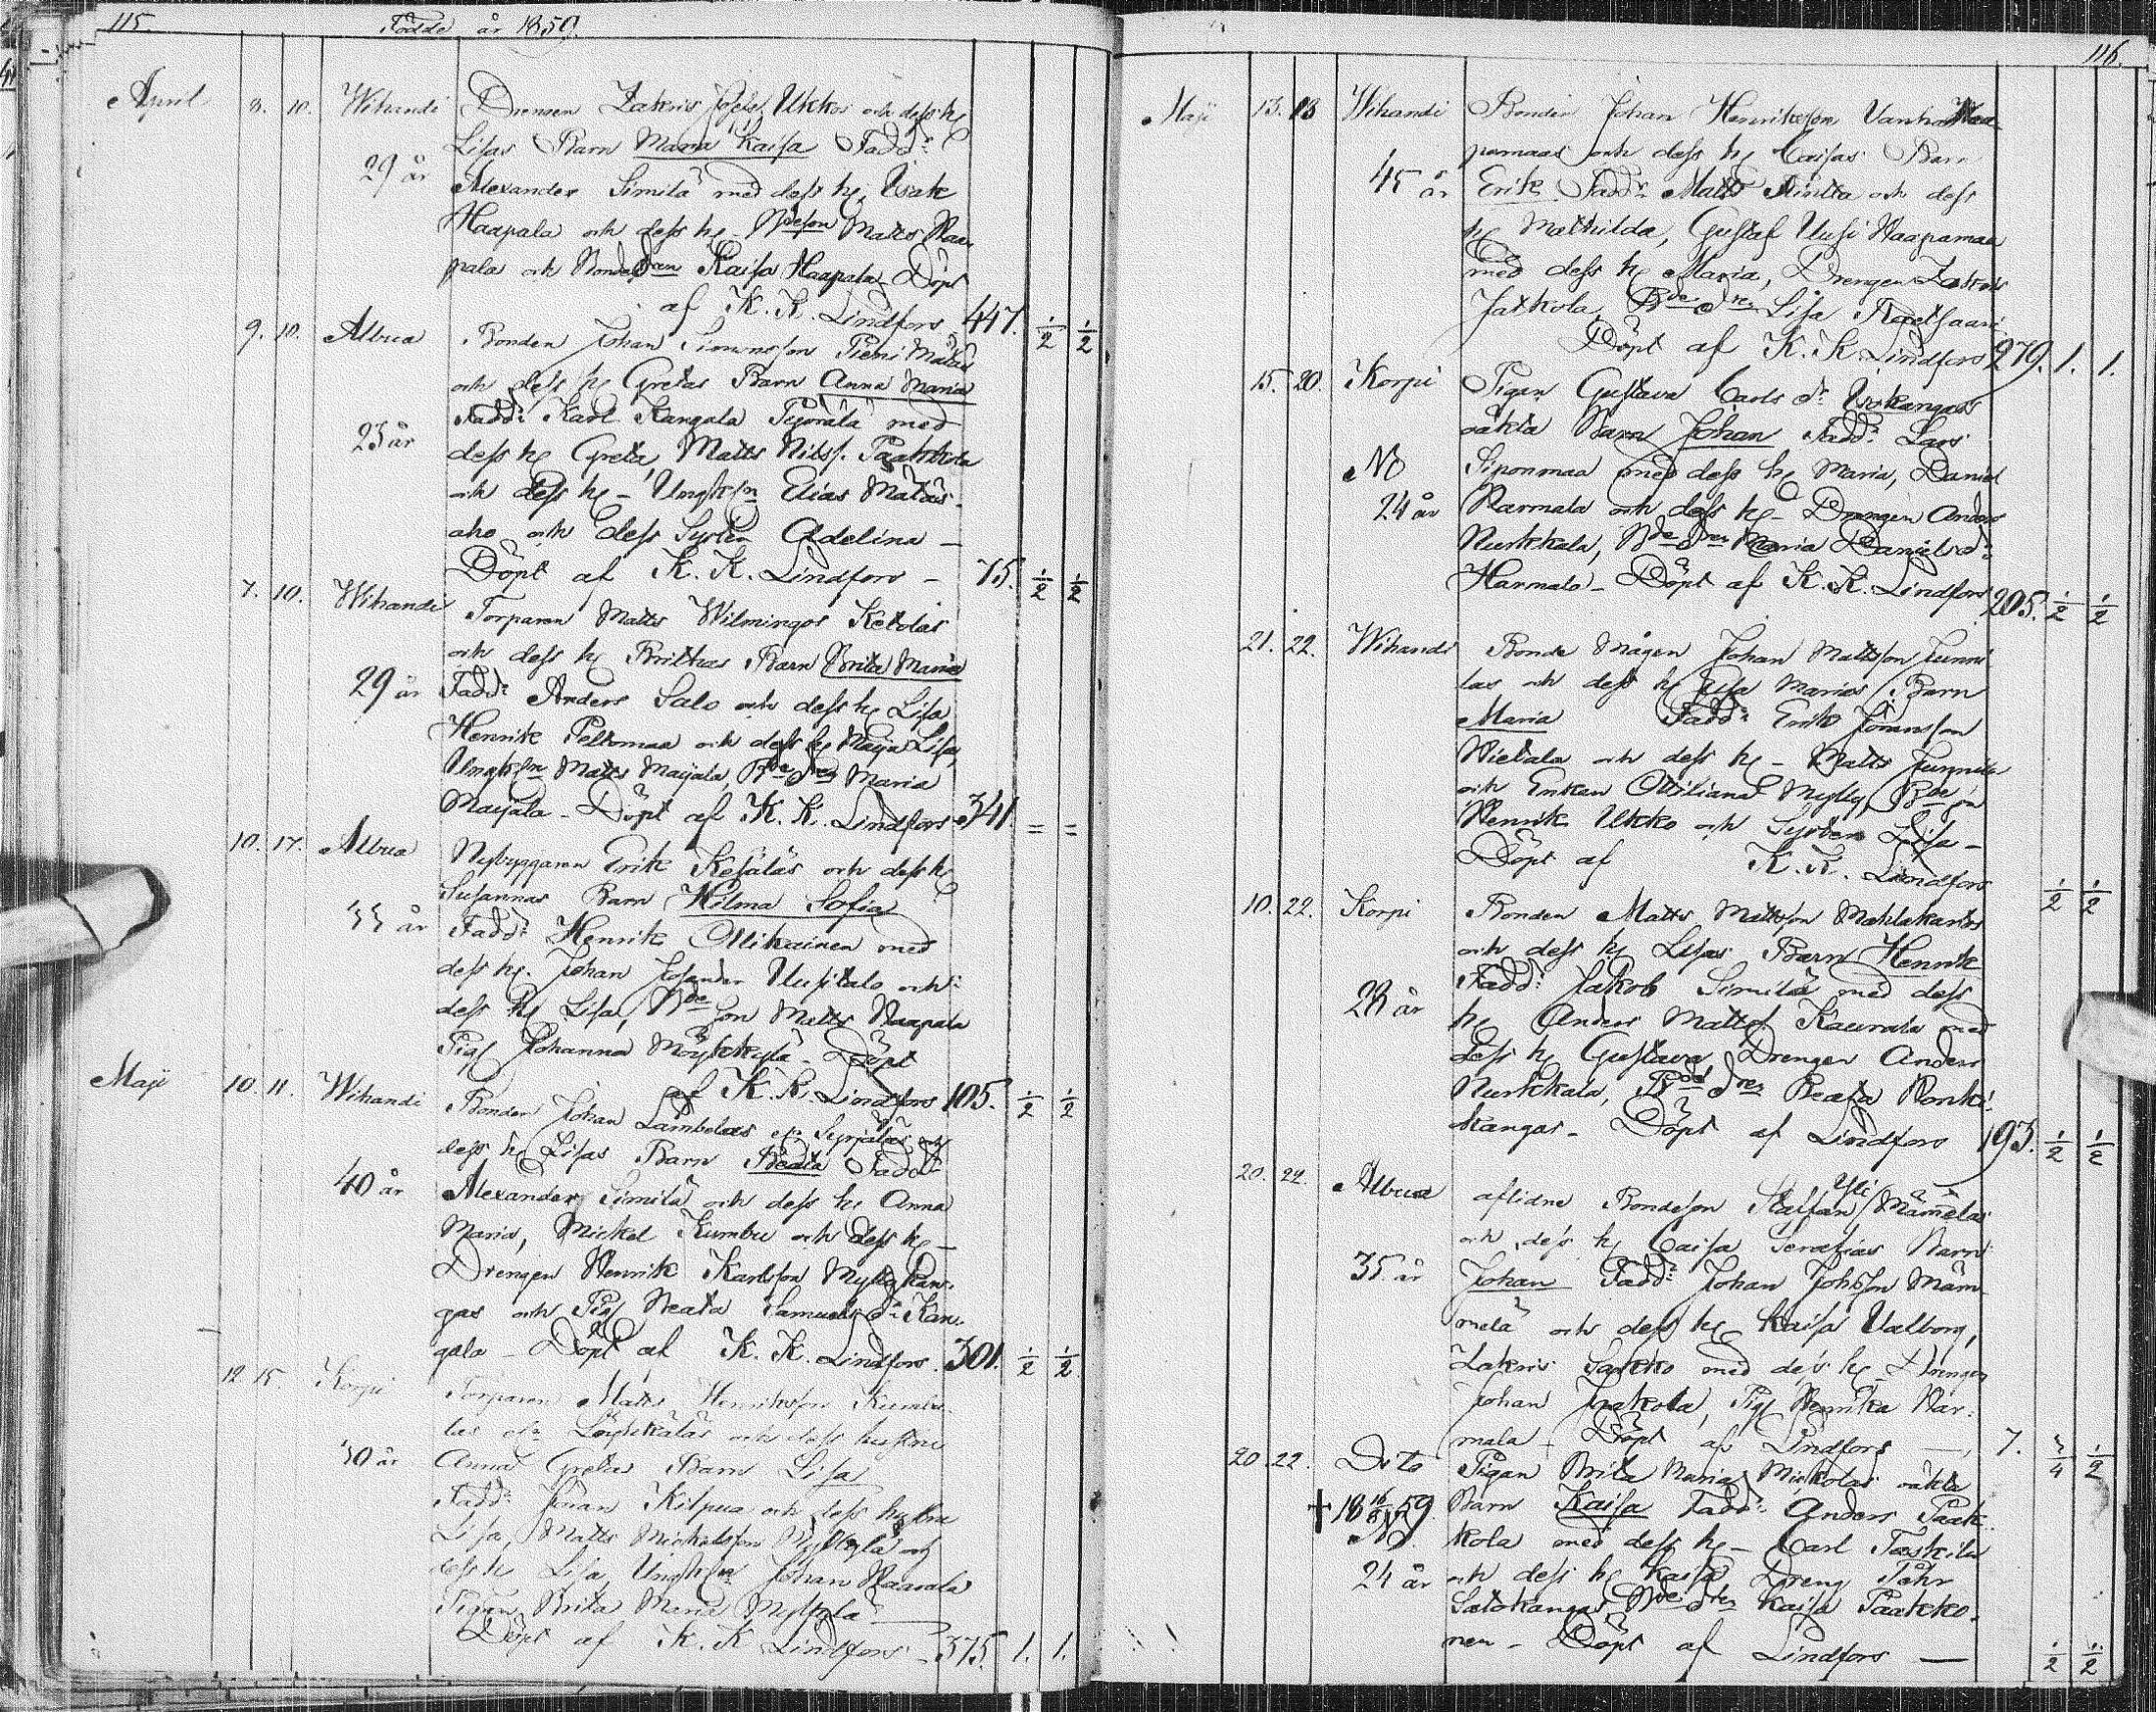 115.
Födde år 1859.
April 8. 10. Wihandi Drengen Zakris Josefs. Ukkos och dess h
Lisas Barn Maria Kaisa Fadd:
29 år Alexander Similä med dess h, Isak
Haapala och dess h - Bdeson Matts Haa
pala och Bondedren Kaisa Haapala Döpt
af K. K. Lindfors 447. 1/2 1/2
9. 10. Albua Bonden Johan Simonsson Pieni
och dess h Gretas Barn Anna Maria
Fadd: Karl Kangala med
23 år dess h Greta, Matts Nilss. Paakkola
och dess h - Ungk. Elias Matas
aho och dess Syster Adelina -
Döpt af K. K. Lindfors - 75. 1/2 1/2
7. 10. Wihandi Torparen Matts Wilmingos Ketolas
och dess h Brithas Barn Brita Maria
29 år Fadd: Anders Salo och dess h Lisa
Henrik Peltomaa och dess h Maija Lisa,
Ungk. Matts Maijala, Bde dren Maria
Maijala - Döpt af K. K. Lindfors 341. = =
10. 17. Albua Nybyggaren Erik Kesäläs och dess h
Susannas Barn Hilma Sofia
33 år Fadd: Henrik Ollikainen med
dess h. Johan Josander Uusitalo och
dess h Lisa, Bde Son Matts Haapala
Pig Johanna Möykkylä - Döpt
af K. K. Lindfors 105. 1/2 1/2
Maji 10. 11. Wihandi Bonden Johan Lambelas Syrjäläs och
dess h Lisas Barn Beata Fadd:
40 år Alexander Similä och dess h Anna
Maria, Mickel Kumbu och dess h -
Drengen Henrik Karlsson Myllykan-
gas och Pig Beata Samuels dr Kan-
gala - Döpt af K. K. Lindfors. 301. 1/2 1/2
12. 15. Korpi Torparen Matts Henriksson Kumbu
las och dess hustru
30 år Anna Gretas Barn Lisa
Fadd: Johan Kilpua och dess hustru
Lisa, Matts Mickelsson Myllylä och
dess h Lisa, Ungk. Johan Haarala
Pigan Brita Maria Myllylä -
Döpt af K. K. Lindfors - 375. 1. 1.
116.
Maji 13. 18 Wihandi Bonden Johan Henriksson Vanha Haa-
pamaas och dess h Caisas Barn
45 år Erik Fadd: Matts Mintta och dess
h Mathilda, Gustaf Uusi Haapamaa
med dess h Maria, Drengen Zakris
Jatkola, Bde dren Lisa
Döpt af K. K. Lindfors 279. 1. 1.
15. 20. Korpi Pigan Gustava Carls dr Isokangas
oäkta Barn Johan Fadd: Lars
No Siponmaa med dess h Maria, Daniel
24 år Harmala och dess h - Drengen Anders
Nurkkala, Bde dren Maria Daniels dr
Harmala - Döpt af K. K. Lindfors 205. 1/2 1/2
21. 22. Wihandi Bonde Mågen Johan Mattsson Junni
las och dess h Marias Barn
Maria Fadd: Erik Jöransson
Wietala och dess h - Matts Junnila
och Enkan Ottiliana Mylly, Bdeson
Henrik Ukko och Syster Lisa -
Döpt af K. K. Lindfors 1/2 1/2
10. 22. Korpi Bonden Matts Mattsson Mahlakankas
och dess h Lisas Barn Henrik
Fadd: Jakob Similä med dess
28 år h Anders Mattss. Kaurala med
dess h Gustava Drengen Anders
Nurkkala, Bde dren Beata Honki
kangas - Döpt af Lindfors 193. 1/2 1/2
20. 22. Albua aflidne Bondeson Staffan Yli Mämmeläs
och dess h Caisa Serafias Barn
35 år Johan Fadd: Johan Johsson Mäm
melä och dess h Kaisa Valborg,
Zakris Sarkko med dess h - Drengen
Johan Jaakola, Pig Henrika Har-
mala - Döpt af Lindfors - 7. 3/4 1/2
20. 22. Dito Pigan Brita Maria Mickolas oäkta
+ 18 16/8 59. Barn Kaisa Fadd: Anders Paak-
No. kola med dess h - Carl Taskila
24 år och dess h Kaisa Dreng Pehr
Salokangas Bde dren Kaisa Paakko-
nen - Döpt af Lindfors - 1/2 1/2